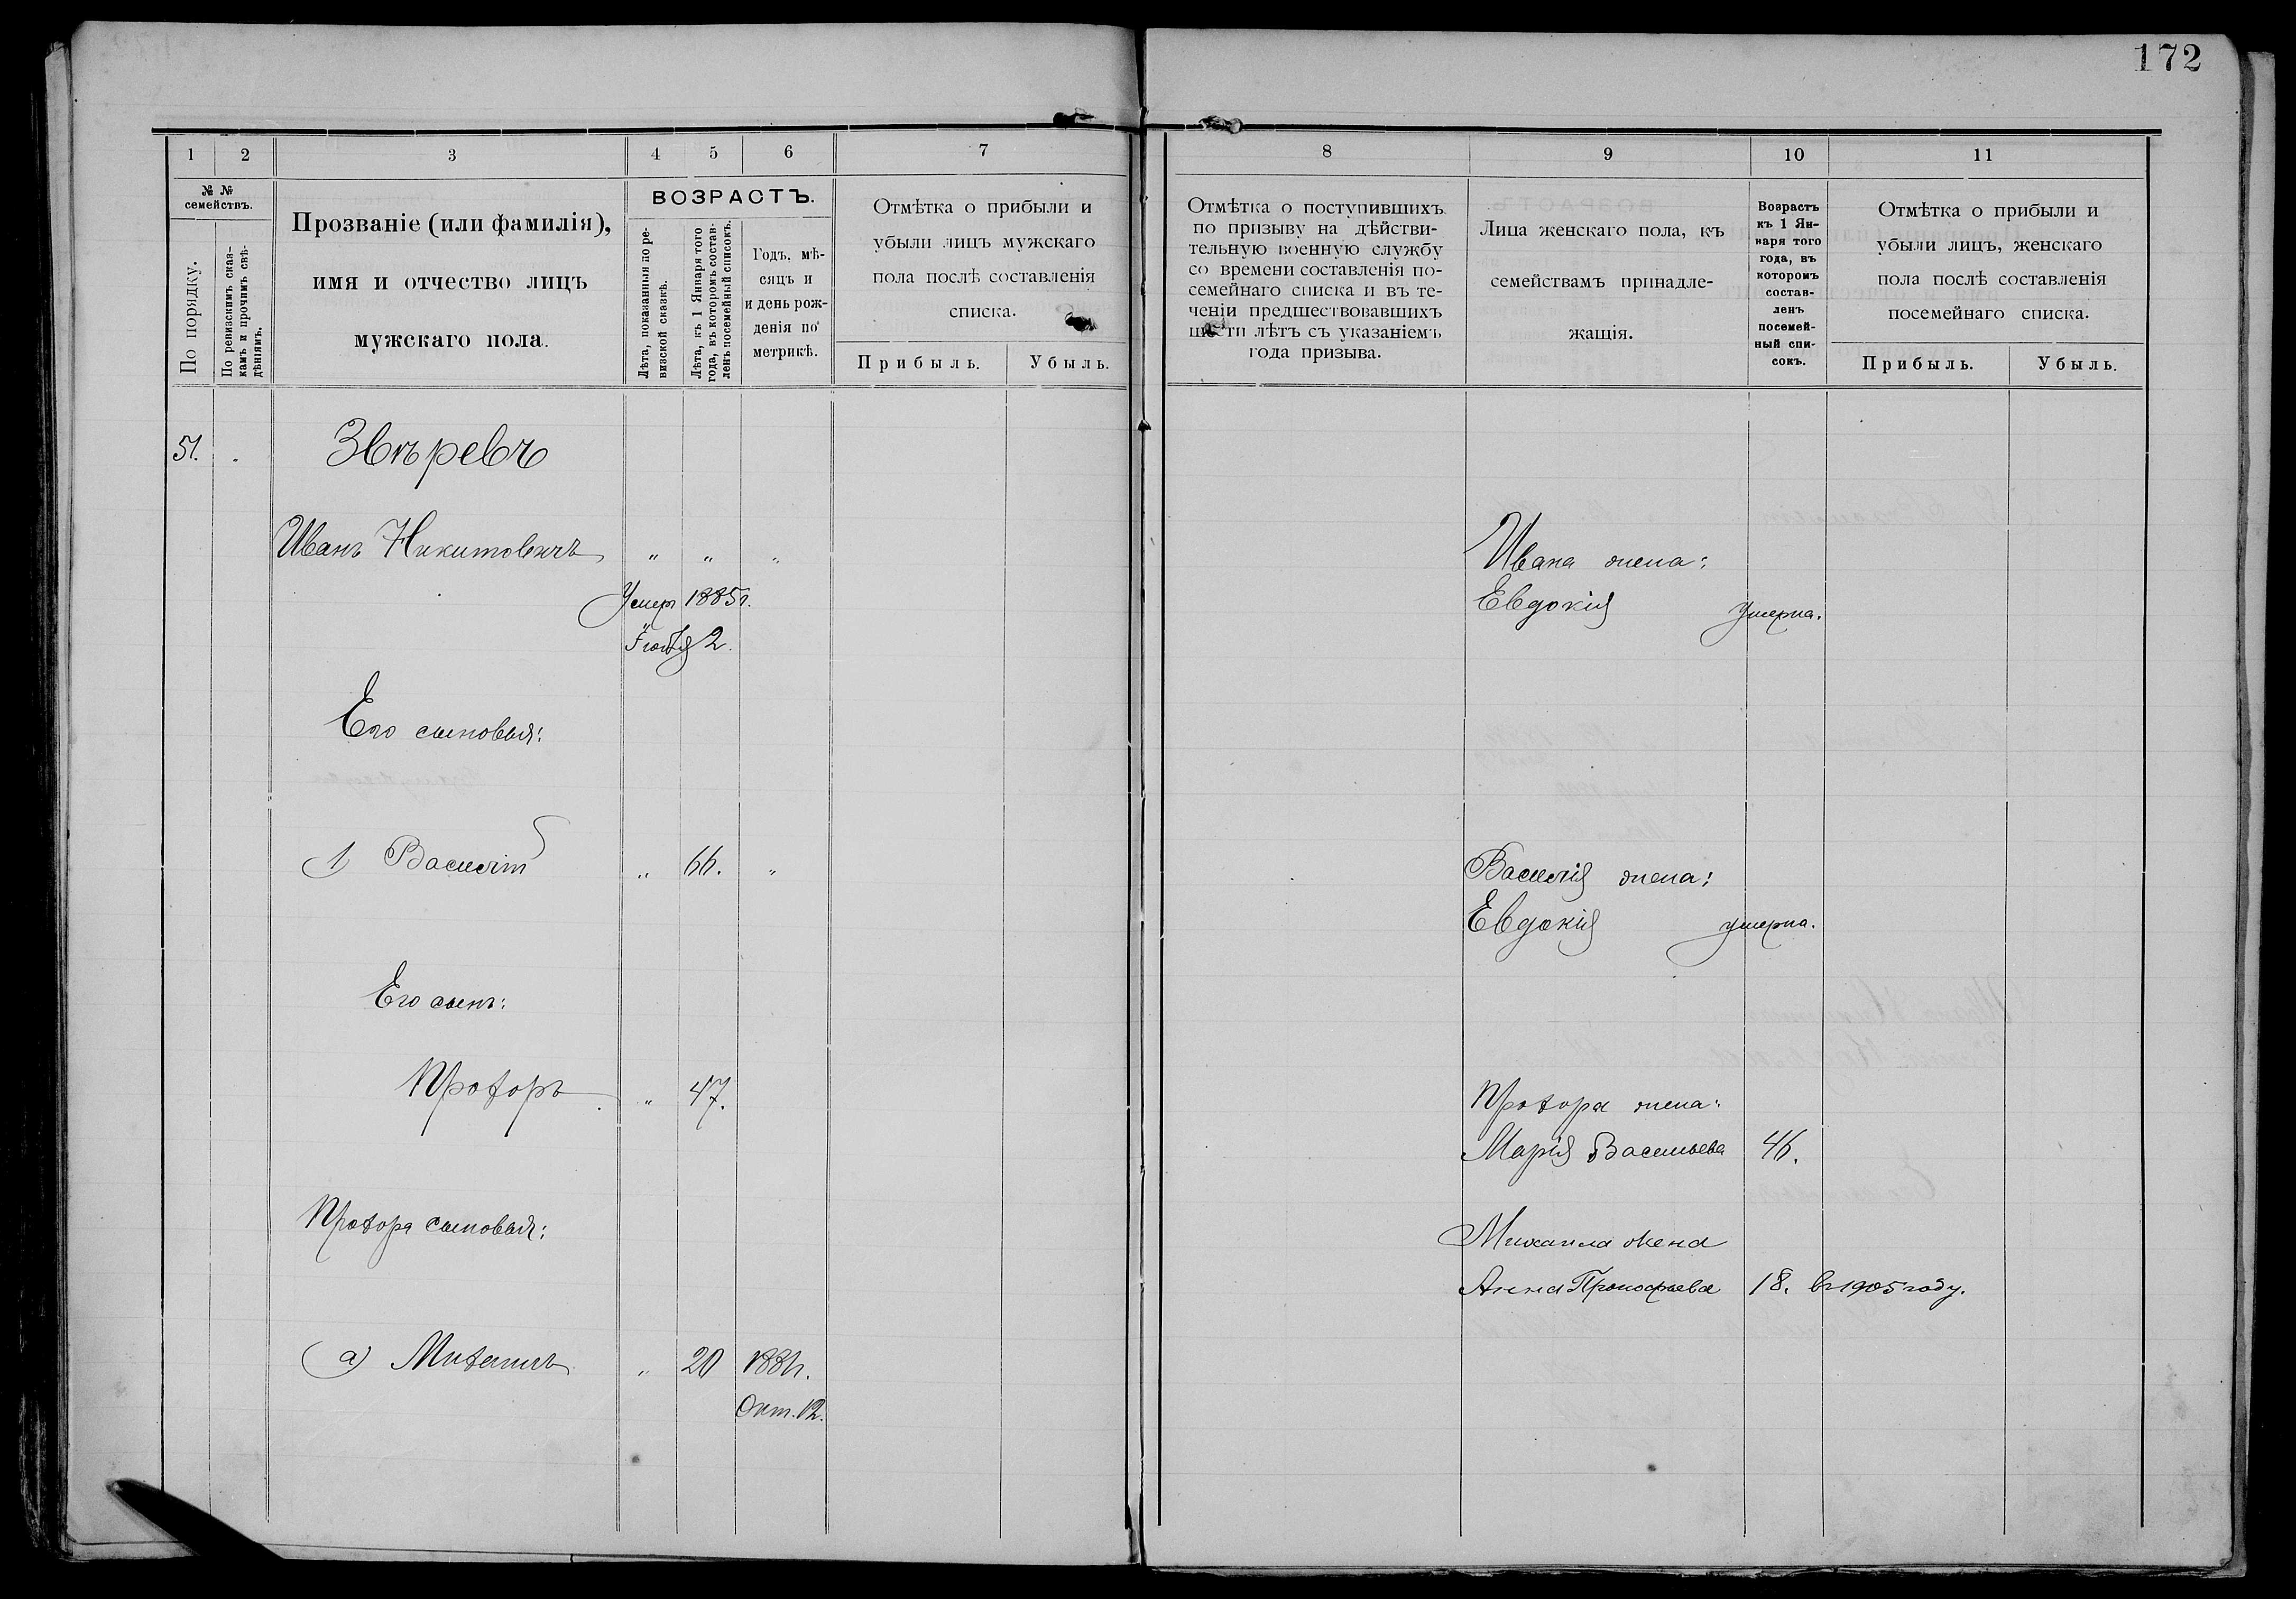 172
1 2 3 4 5 6 7
№ № семействъ.
По порядку.
По ревизскимъ сказкамъ и прочимъ свѣдѣніямъ.
Прозваніе (или фамилія),
имя и отчество лицъ
мужскаго пола.
ВОЗРАСТЪ.
Лѣта, показанныя по ревизской сказкѣ.
Лѣта, къ 1 Января того года, въ которомъ составленъ посемейный списокъ.
Годъ, мѣ-
сяцъ и
и день рож-
денія по
метрикѣ.
Отмѣтка о прибыли и
убыли лицъ мужскаго
пола послѣ составленія
списка.
Прибыль. Убыль.
51. Звѣревъ
Иванъ Никитовичъ " " "
Умер 1885 г.
Іюля 2.
Его сыновья:
1) Василій " 66. "
Его сынъ:
Прохоръ " 47.
Прохора сыновья:
а) Михаилъ " 20 1884 г.
Окт. 12.
8 9 10 11
Отмѣтка о поступившихъ
по призыву на дѣйстви-
тельную военную службу
со времени составленія по-
семейнаго списка и въ те-
ченіи предшествовавшихъ
шести лѣтъ съ указаніемъ
года призыва.
Лица женскаго пола, къ
семействамъ принадле-
жащія.
Возрастъ
къ 1 Ян-
варя того
года, въ
которомъ
состав-
ленъ
посемей-
ный спи-
сокъ.
Отмѣтка о прибыли и
убыли лицъ, женскаго
пола послѣ составленія
посемейнаго списка.
Прибыль. Убыль.
Ивана жена:
Евдокія умерла.
Василія жена:
Евдокія умерла.
Прохора жена:
Марія Васильева 46.
Михаила жена
Анна Прокофьева 18. въ 1905 году.